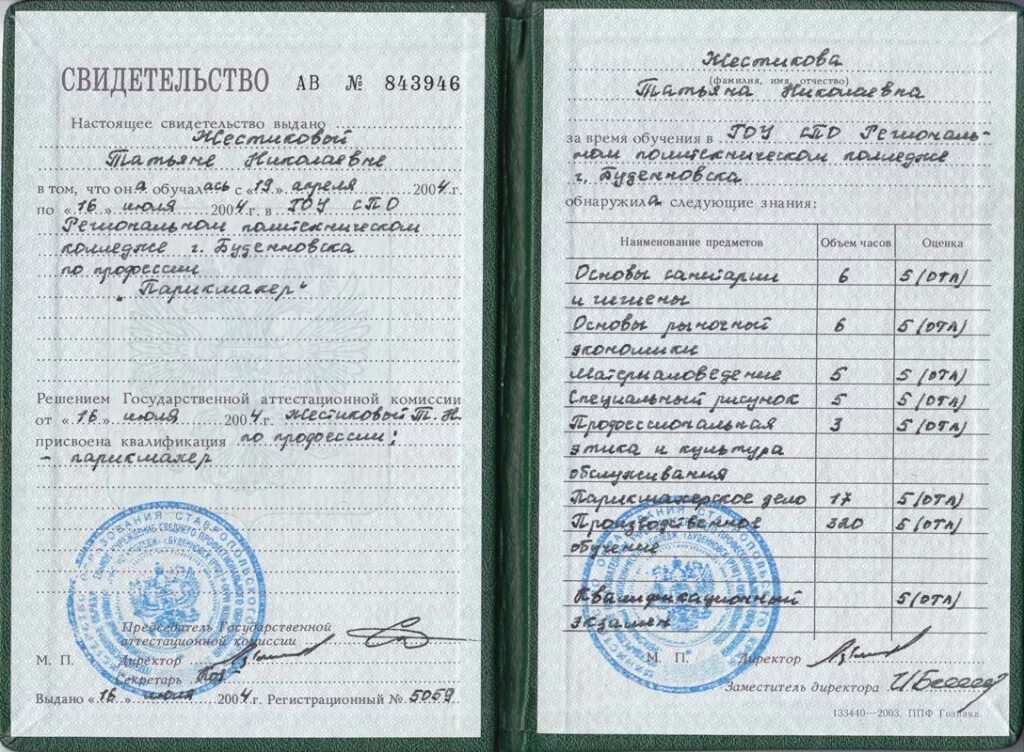 СВИДЕТЕЛЬСТВО АВ № 843946
Настоящее свидетельство выдано
Жестиковой
Татьяне Николаевне
в том, что она обучалась с «19» апреля 2004 г.
по «16» июля 2004 г. в ГОУ СПО
Региональном политехническом
колледже г. Буденновска
по профессии
"Парикмахер"
Решением Государственной аттестационной комиссии
от «16» июля 2004 г. Жестиковой Т. Н.
присвоена квалификация по профессии:
- парикмахер
Председатель Государственной
аттестационной комиссии
М. П. Директор
Секретарь
Выдано «16» июля 2004 г. Регистрационный № 5059
Жестикова
(фамилия, имя, отчество)
Татьяна Николаевна
за время обучения в ГОУ СПО Региональ-
ном политехническом колледже
г. Буденновска
обнаружила следующие знания:
Наименование предметов Объем часов Оценка
Основы санитарии 6 5 (отл)
и гигиены
Основы рыночной 6 5 (отл)
экономики
Материаловедение 5 5 (отл)
Специальный рисунок 5 5 (отл)
Профессиональная 3 5 (отл)
этика и культура
обслуживания
Парикмахерское дело 17 5 (отл)
Производственное 320 5 (отл)
обучение
Квалификационный 5 (отл)
экзамен
М. П. Директор
Заместитель директора
133440—2003. ППФ Гознака.